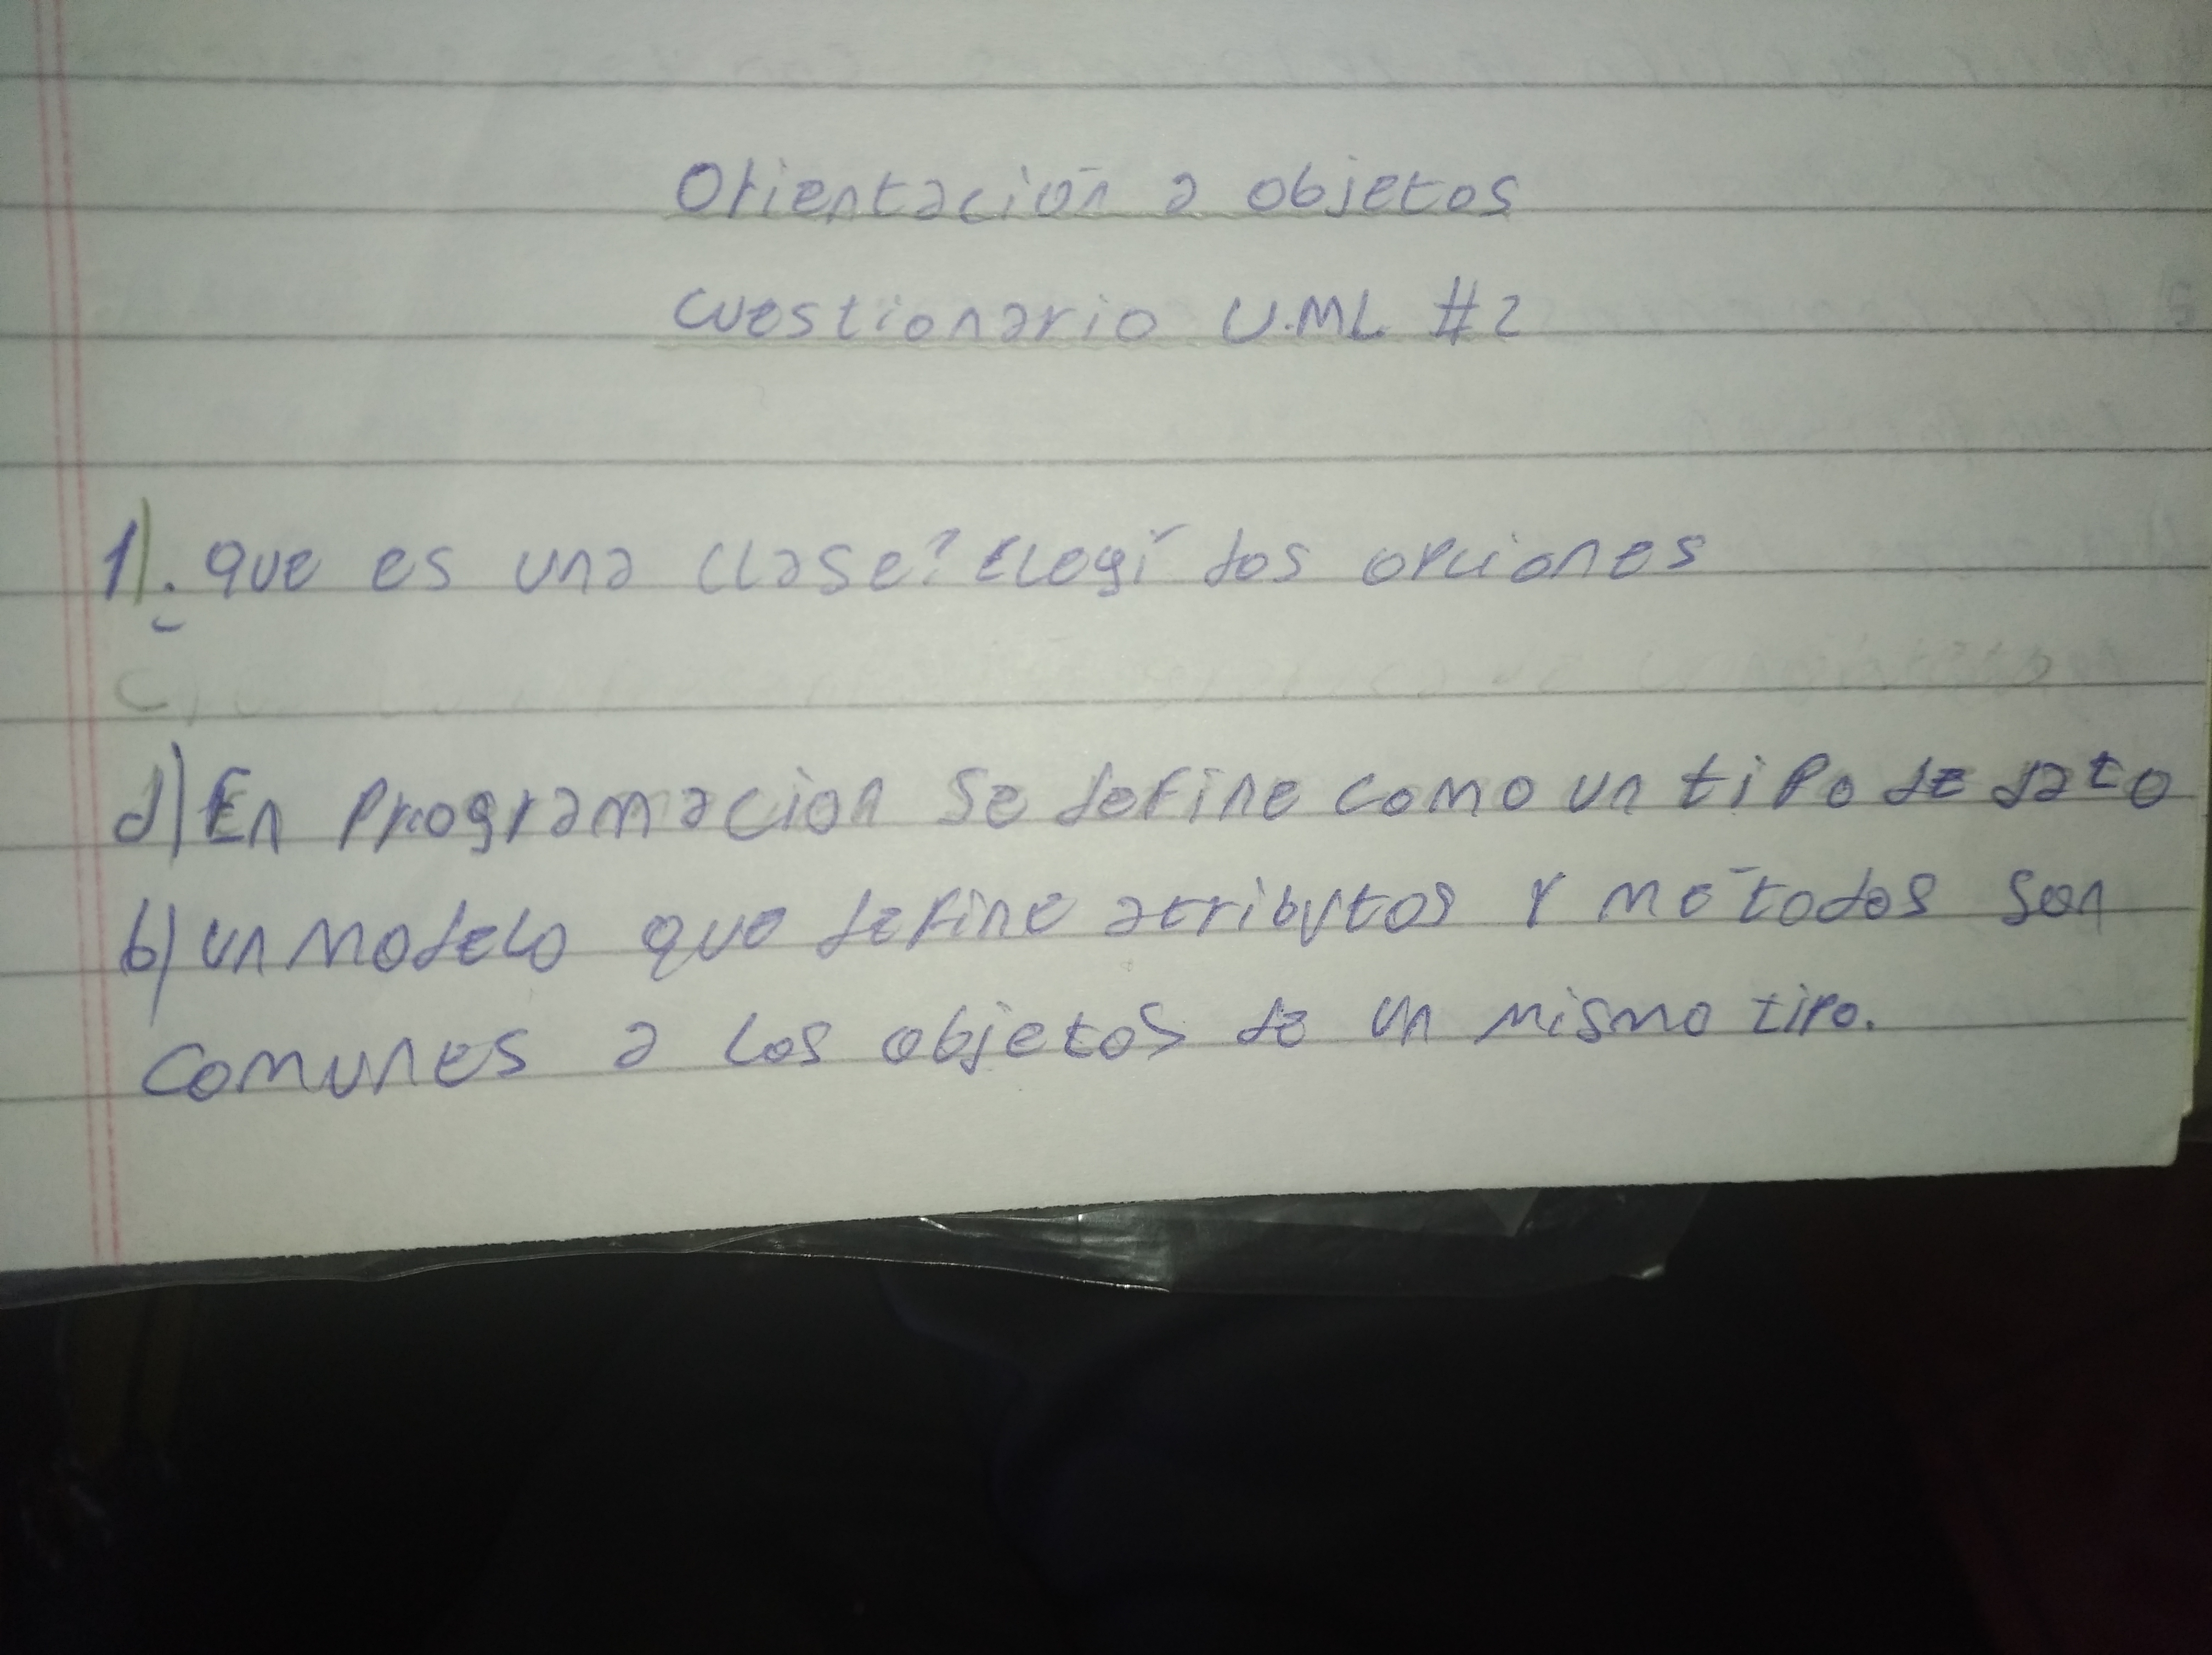 Orientación a objetos
Cuestionario U.ML #2
1). que es una clase? Elegí dos opciones
c)
d) En Programacion se define como un tipo de dato
b) un modelo que define atributos y métodos son
comunes a los objetos de un mismo tipo.